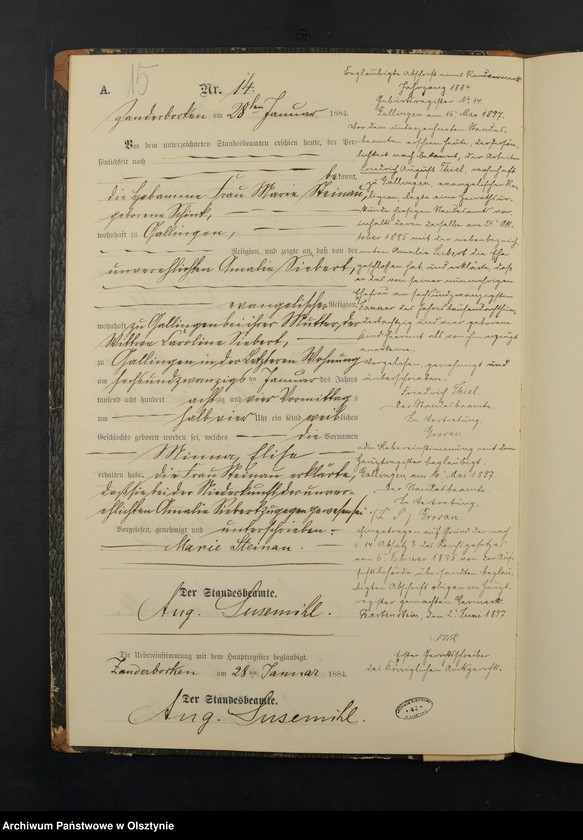 15
A.
Nr. 14.
Zanderborken am 28ten Januar 1884.
Vor dem unterzeichneten Standesbeamten erschien heute, der Per-
sönlichkeit nach
bekannt,
die Hebamme Frau Marie Steinau,
geborene
wohnhaft zu Gallingen,
Religion, und zeigte an, daß von der
unverehlichten Amalie Siebert,
evangelischer Religion,
wohnhaft zu Gallingen bei ihrer Mutter, der
Wittwe Caroline Siebert,
zu Gallingen in der Letzteren Wohnung
am sechsundzwanzigsten Januar des Jahres
tausend acht hundert achtzig und vier Vormittags
um halb vier Uhr ein Kind weiblichen
Geschlechts geboren worden sei, welches die Vornamen
Minna, Elise
erhalten habe. die Frau Steinau erklärte,
daß sie bei der Niederkunft der unver-
ehlichten Amalie Siebert zugegen gewesen sei.
Vorgelesen, genehmigt und unterschrieben.
Marie Steinau.
Der Standesbeamte.
Aug. Susemihl.
Die Uebereinstimmung mit dem Hauptregister beglaubigt.
Zanderborken am 28ten Januar 1884.
Der Standesbeamte.
Aug. Susemihl.
Beglaubigte Abschrift eines Randvermerks
Jahrgang 1884.
Geburtsregister Nr. 14.
Gallingen am 16. Mai 1897.
Vor dem unterzeichneten Standes-
beamten erschien heute, der Persön-
lichkeit nach bekannt, der Arbeiter
Friedrich August Thiel, wohnhaft
zu Gallingen, evangelischer Re-
ligion, legte eine Heiratsur-
kunde hiesigen Standesamts vor
inhalts deren derselbe am 24. Ok-
tober 1885 mit der nebenbezeich-
neten Amalie Siebert die Ehe
geschlossen hat und erklärte, daß
er das von seiner nunmehrigen
Ehefrau am sechsundzwanzigsten
Januar des Jahres tausend achthun-
dert achtzig und vier geborene
Kind hiermit als von ihm erzeugt
anerkenne.
Vorgelesen, genehmigt und
unterschrieben.
Friedrich Thiel.
Der Standesbeamte
In Vertretung.
die Uebereinstimmung mit dem
Hauptregister beglaubigt.
Gallingen am 16. Mai 1897.
Der Standesbeamte
In Vertretung.
(L. S.)
Eingetragen auf Grund der nach
§ 14 Absatz 2 des Reichsgesetzes
vom 6. Februar 1875 von der Auf-
sichtsbehörde übersandten beglau-
bigten Abschrift obigen im Haupt-
register gemachten Vermerks.
Bartenstein, den 2. Juni 1897
Gerichtsschreiber
des Königlichen Amtsgerichts.
Archiwum Państwowe w Olsztynie